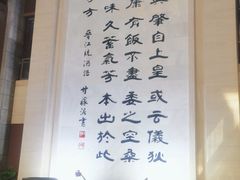 肇自上皇或云儀狄
康有飯不盡委之空桑
味久蓄氣芳本出於此
方
江統酒誥
書